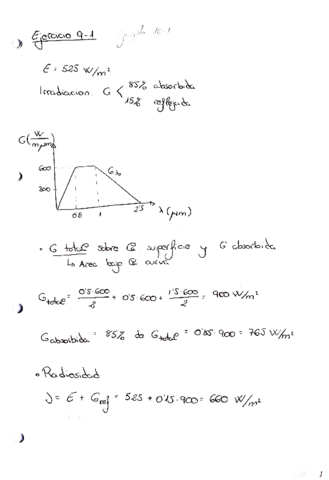 Ejercicio 9-1
E = 525 W/m²
Irradiacion. G < 85% absorbida
15% reflejada
G(W/m²μm)
600
300
Gλ
0'5
1
2'5
λ (μm)
• G total sobre la superficie y G absorbida
↳ Area bajo la curva
G total = 0'5·600/2 + 0'5·600 + 1'5·600/2 = 900 W/m²
G absorbida = 85% de G total = 0'85·900 = 765 W/m²
• Radiosidad
J = E + G ref = 525 + 0'15·900 = 660 W/m²
1